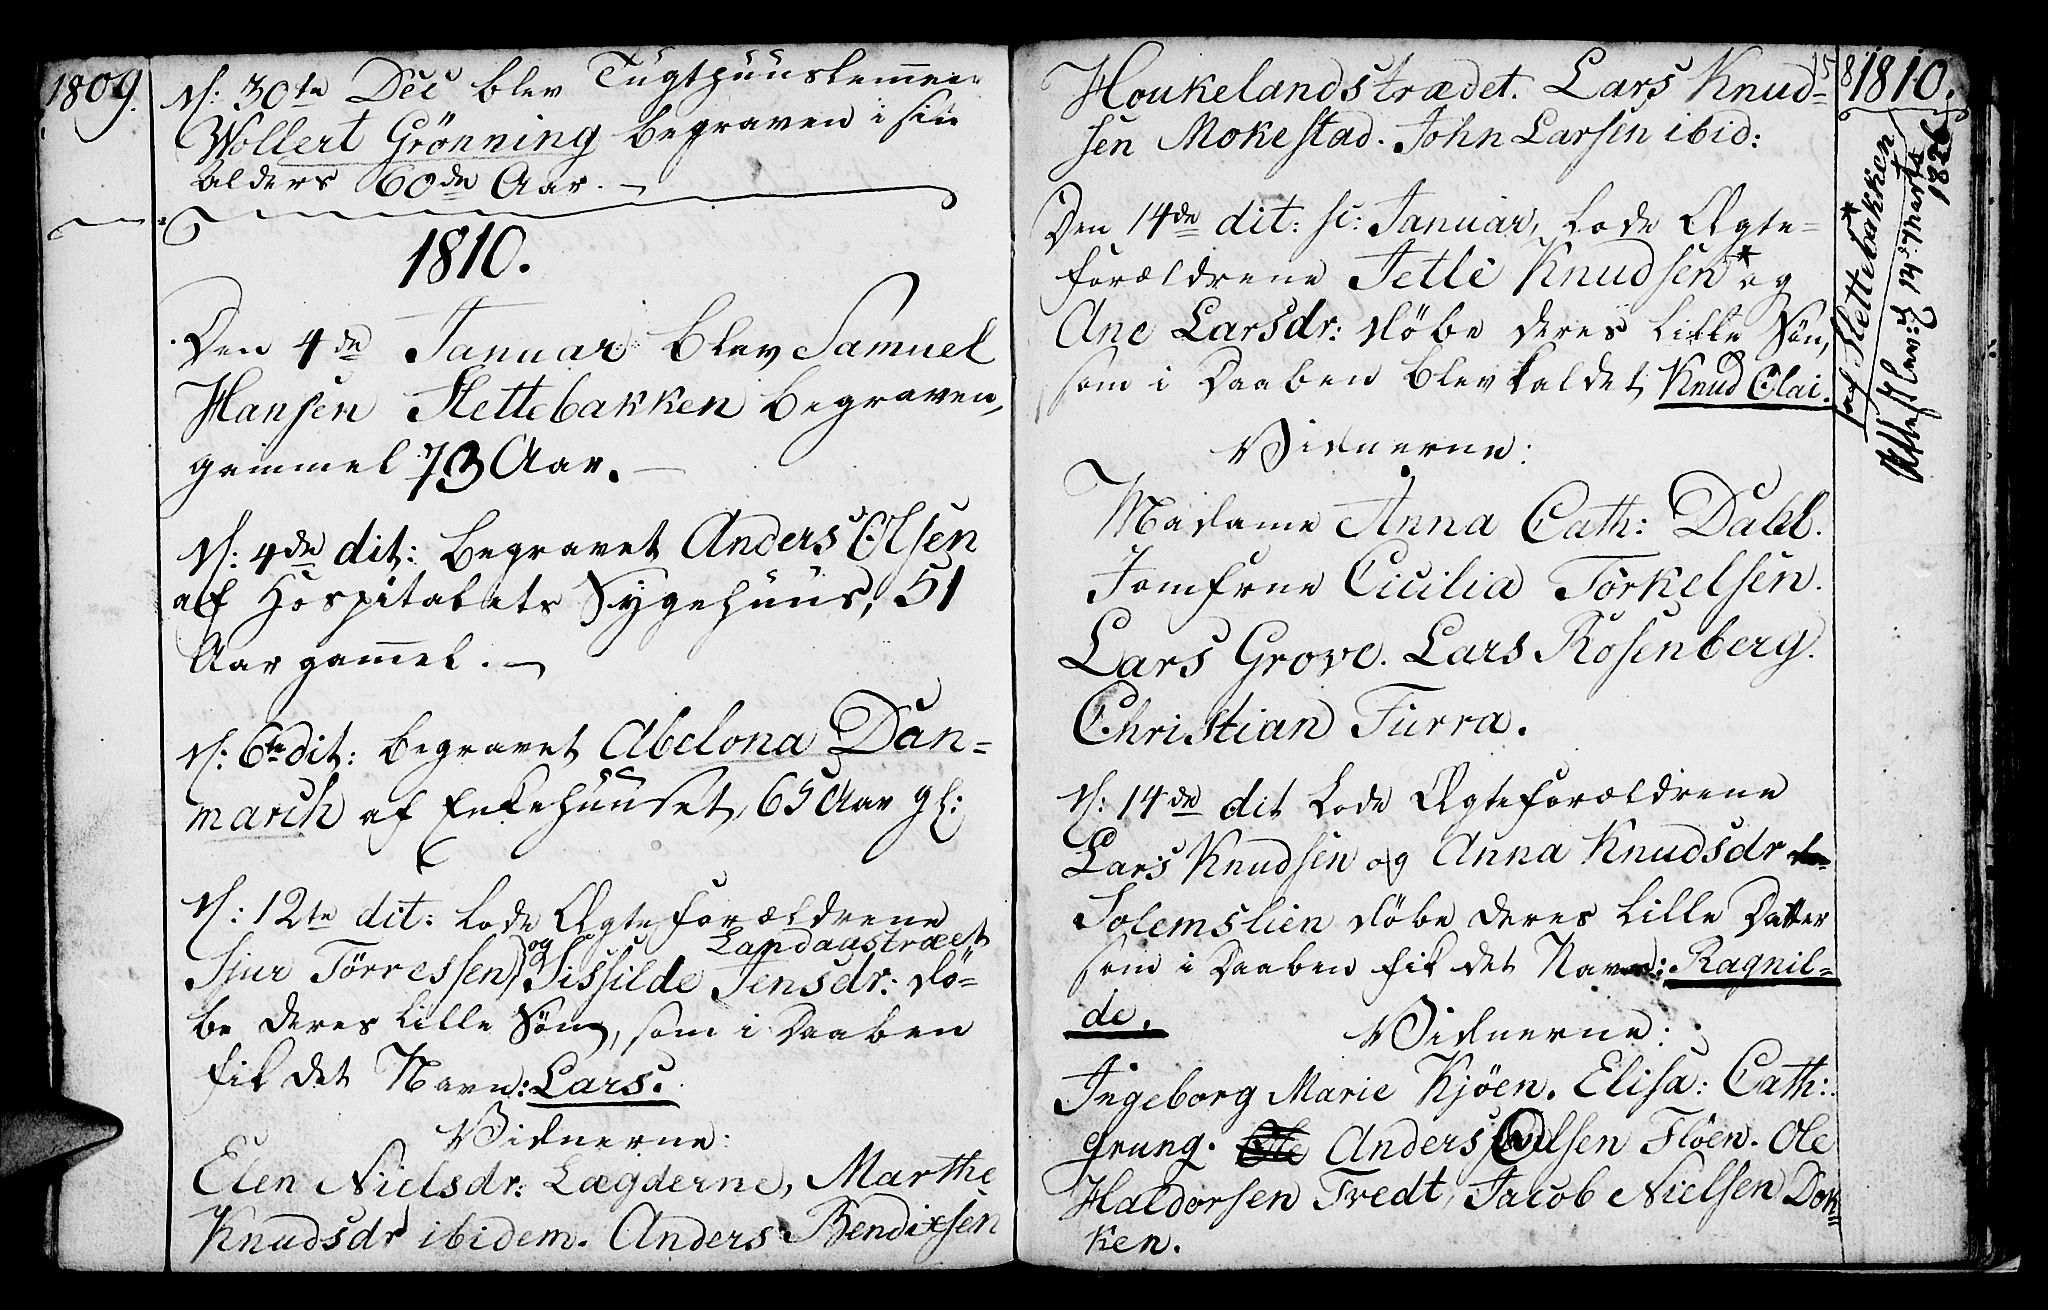 1809.
N: 30te Dec blev Tugthuuslemmen
Wollert Grönning begraven i sin
Alders 60de Aar.
1810.
Den 4de Januar blev Samuel
Hansen Slettebakken begraven,
gammel 73 Aar.
N: 4de dit: begravet Anders Olsen
af Hospitalets Sygehuus, 51
Aar gammel.
N: 6te dit: begravet Abelona Dan=
march af Enkehuuset, 65 Aar gl:
N: 12te dit: lode Ægteforældrene
Landaustræet
Siur Törressen og Sissilde Jensdr: dö=
be deres lille Sön, som i Daaben
fik det Navn: Lars.
Vidnerne:
Elen Nielsdr: Lægderne, Marthe
Knudsdr ibidem. Anders Bendixsen
158
1810.
Houkelandstrædet. Lars Knud=
sen Mokestad. John Larsen ibid:
Den 14de dit: sc: Januar, lode Ægte=
forældrene Jetle Knudsen* og
Ane Larsdr: döbe deres lille Sön,
som i Daaben blev kaldet Knud Olai.
Vidnerne:
Madame Anna Cath: Dahl.
Jomfrue Cicilia Törkelsen.
Lars Grove. Lars Rosenberg.
Christian Furra.
N: 14de dit lode Ægteforældrene
Lars Knudsen og Anna Knudsdr
Solemslien döbe deres lille Datter
som i Daaben fik det Navn: Ragnil=
de.
Vidnerne:
Ingeborg Marie Kjöen. Elisa: Cath:
Grung. Anders Olsen Flöen. Ole
Haldorsen Tvedt, Jacob Nielsen Dok=
ken.
* af Slettebakken
14 Marts
1826